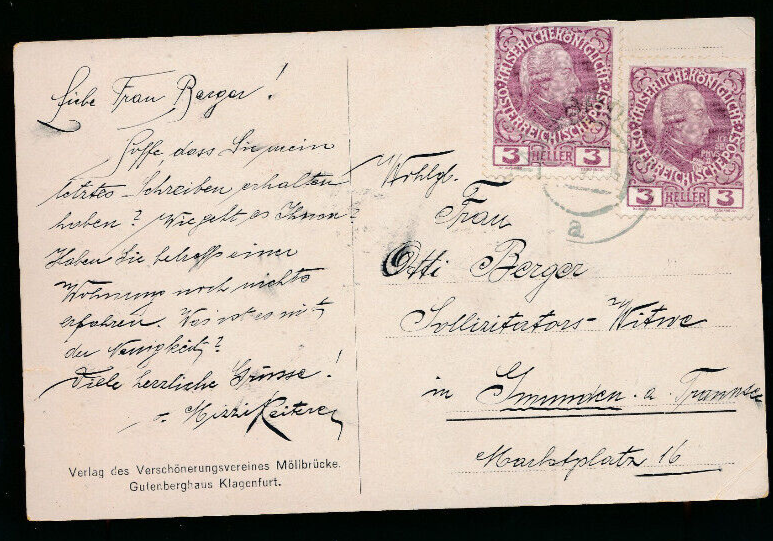 Liebe Frau Berger!
Hoffe, dass Sie mein
letztes Schreiben erhalten
haben? Wie geht es Ihnen?
Haben Sie betreffs einer
Wohnung noch nichts
erfahren. Was ist es mit
der Neuigkeit?
Viele herzliche Grüsse!
Mizzi Keiterer
Verlag des Verschönerungsvereines Möllbrücke.
Gutenberghaus Klagenfurt.
KAISERLICHEKÖNIGLICHE
ÖSTERREICHISCHEPOST
3 HELLER 3
KAISERLICHEKÖNIGLICHE
ÖSTERREICHISCHEPOST
3 HELLER 3
a
Wohlgb.
Frau
Otti Berger
Sollizitators-Witwe
in Gmunden a. Traunsee
Marktplatz 16